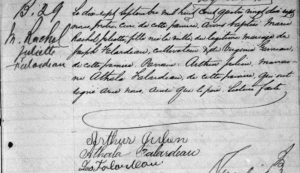 B. 29
M. Rachel
Juliette
Falardeau
Le dix sept Septembre mil neuf cent
prêtre curé de cette paroisse avons baptisé Marie
Rachel Juliette fille née la veille du légitime mariage de
Joseph Falardeau, cultivateur & de Eugénie
de cette paroisse. Parrain Arthur Julien, marrai-
ne Athala Falardeau de cette paroisse qui ont
signé avec nous, ainsi que le père. Lecture faite.
Arthur Julien
Athala Falardeau
Jos Falardeau